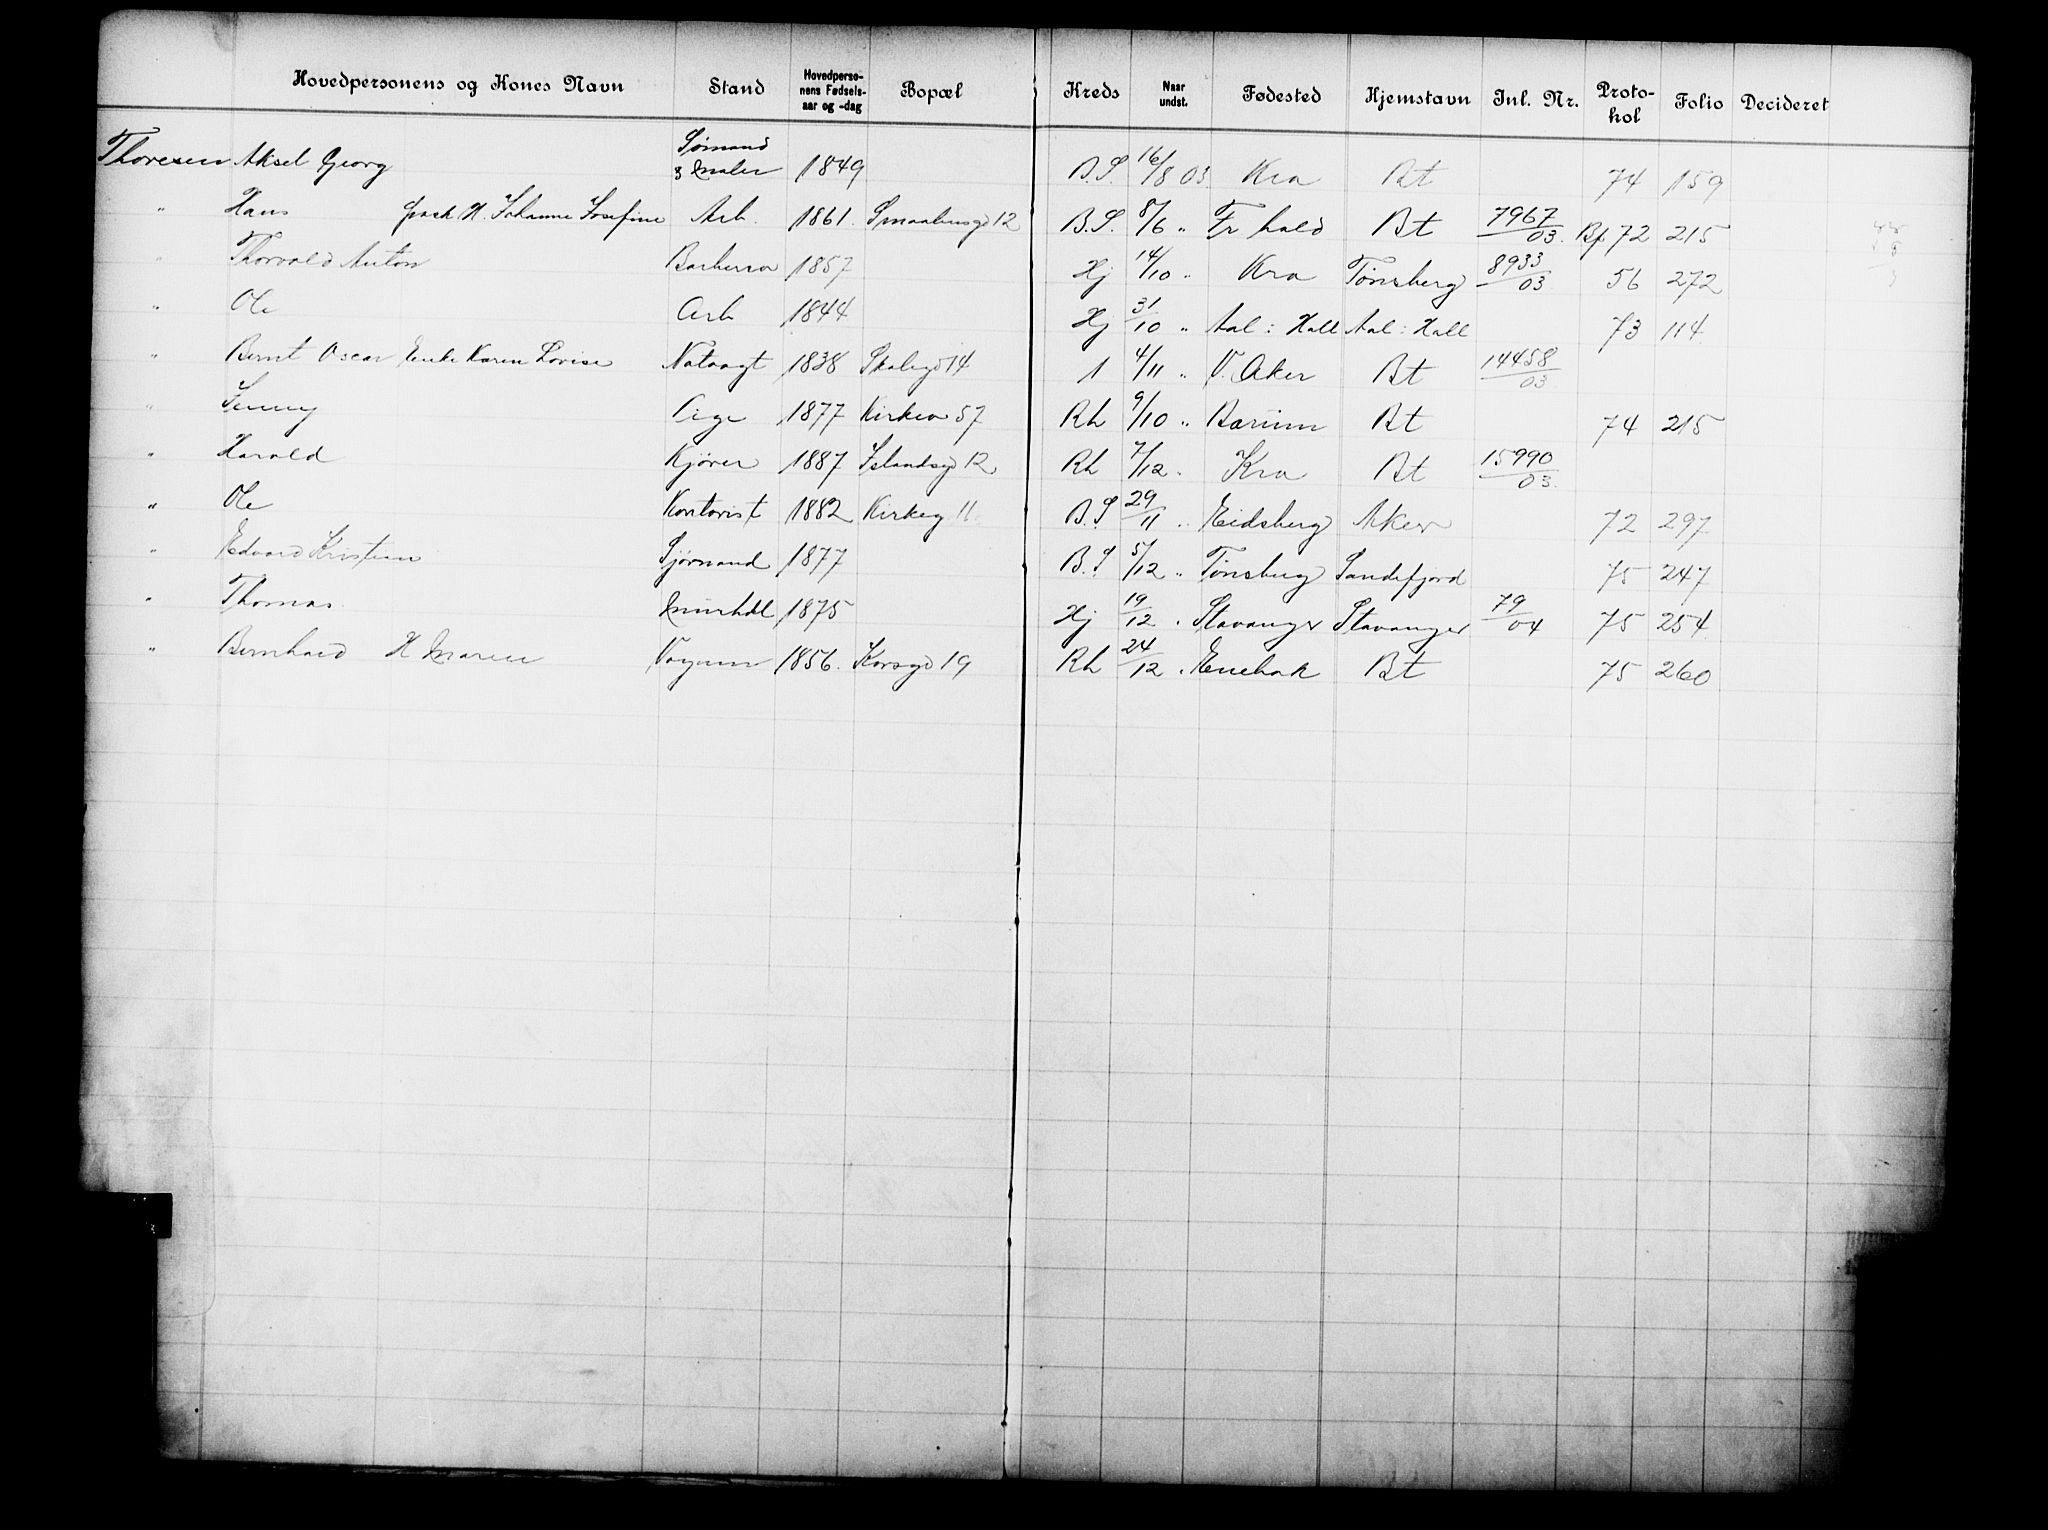 Hovedpersonens og Kones Navn Stand Hovedperso-nens Fødsels-aar og -dag Bopæl Kreds Naar undst. Fødested Hjemstavn Jnl. Nr. Proto-kol Folio Decideret
Thoresen Aksel Georg Sømand & Maler 1849 B.S. 16/8 03. Kra Bt 74 159
" Hans H. Johanne Josefine Arb. 1861. Smaalensgd 12 B.S. 8/6 " Fr hald Bt 7967/03. Bf 72 215
" Thorvald Anton 1857 Hj 14/10 " Kra Tønsberg 8933/03 56 272
" Ole Arb 1844 Hj 31/10 " Aal : Hall Aal : Hall 73 114
" Bernt Oscar Enke Karen Lovise Natvagt 1838 14 1 4/11 " V. Aker Bt 14458/03
" Jenny Pige 1877 Kirkev 57 Rh 9/10 " Bærum Bt 74 215
" Harald Kjører 1887 Islandsgd 12 Rh 7/12 " Kra Bt 15990/03.
" Ole Kontorist 1882 Kirkeg 11 B.S 29/11 " Eidsberg Aker 72 297
" Edvard Kristian Sjømand 1877 B.S 5/12 " Tønsberg Sandefjord 75 247
" Thomas 1875 Hj 19/12 " Stavanger Stavanger 79/04 75 254
" Bernhard H Maren Vognm 1856. Korsgd 19 Rh 24/12 " Enebak Bt 75 260